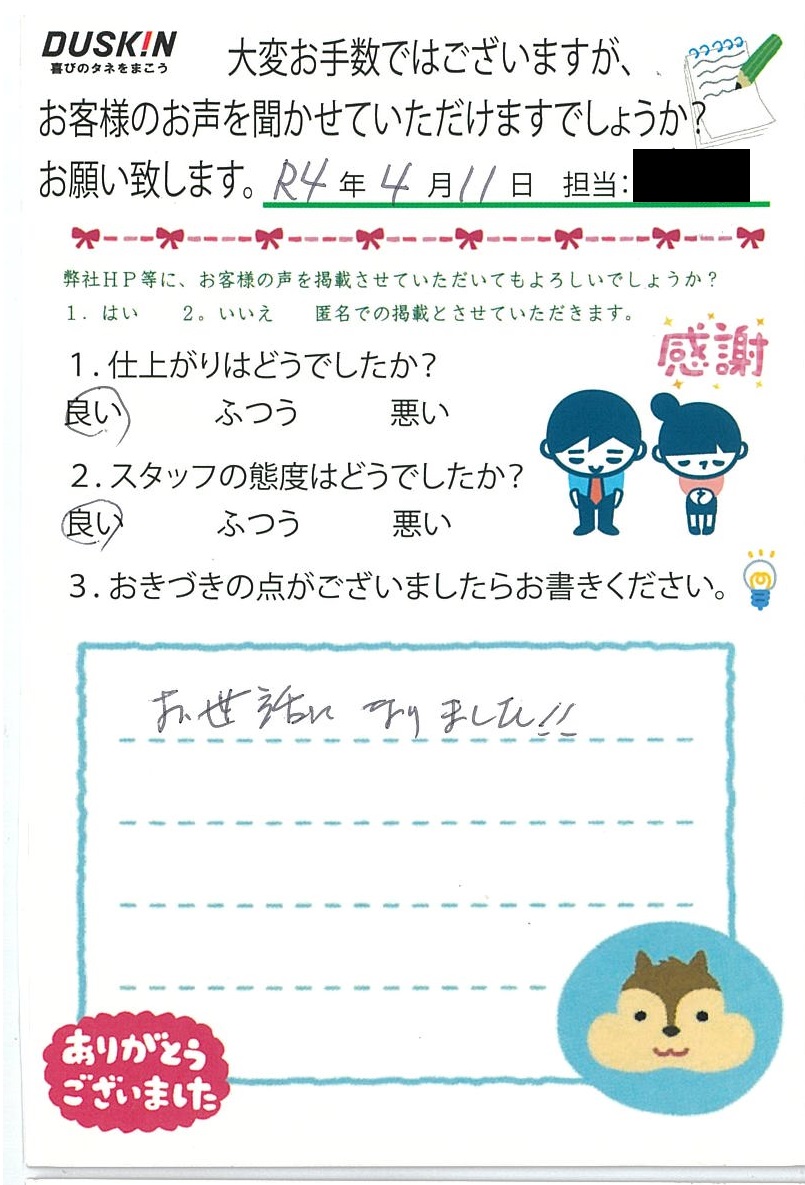 DUSKIN
喜びのタネをまこう
大変お手数ではございますが、
お客様のお声を聞かせていただけますでしょうか?
お願い致します。R4年4月11日 担当:
弊社HP等に、お客様の声を掲載させていただいてもよろしいでしょうか?
1. はい 2。いいえ 匿名での掲載とさせていただきます。
感謝
1.仕上がりはどうでしたか?
良い ふつう 悪い
2.スタッフの態度はどうでしたか?
良い ふつう 悪い
3.おきづきの点がございましたらお書きください。
お世話になりました!!
ありがとう
ございました